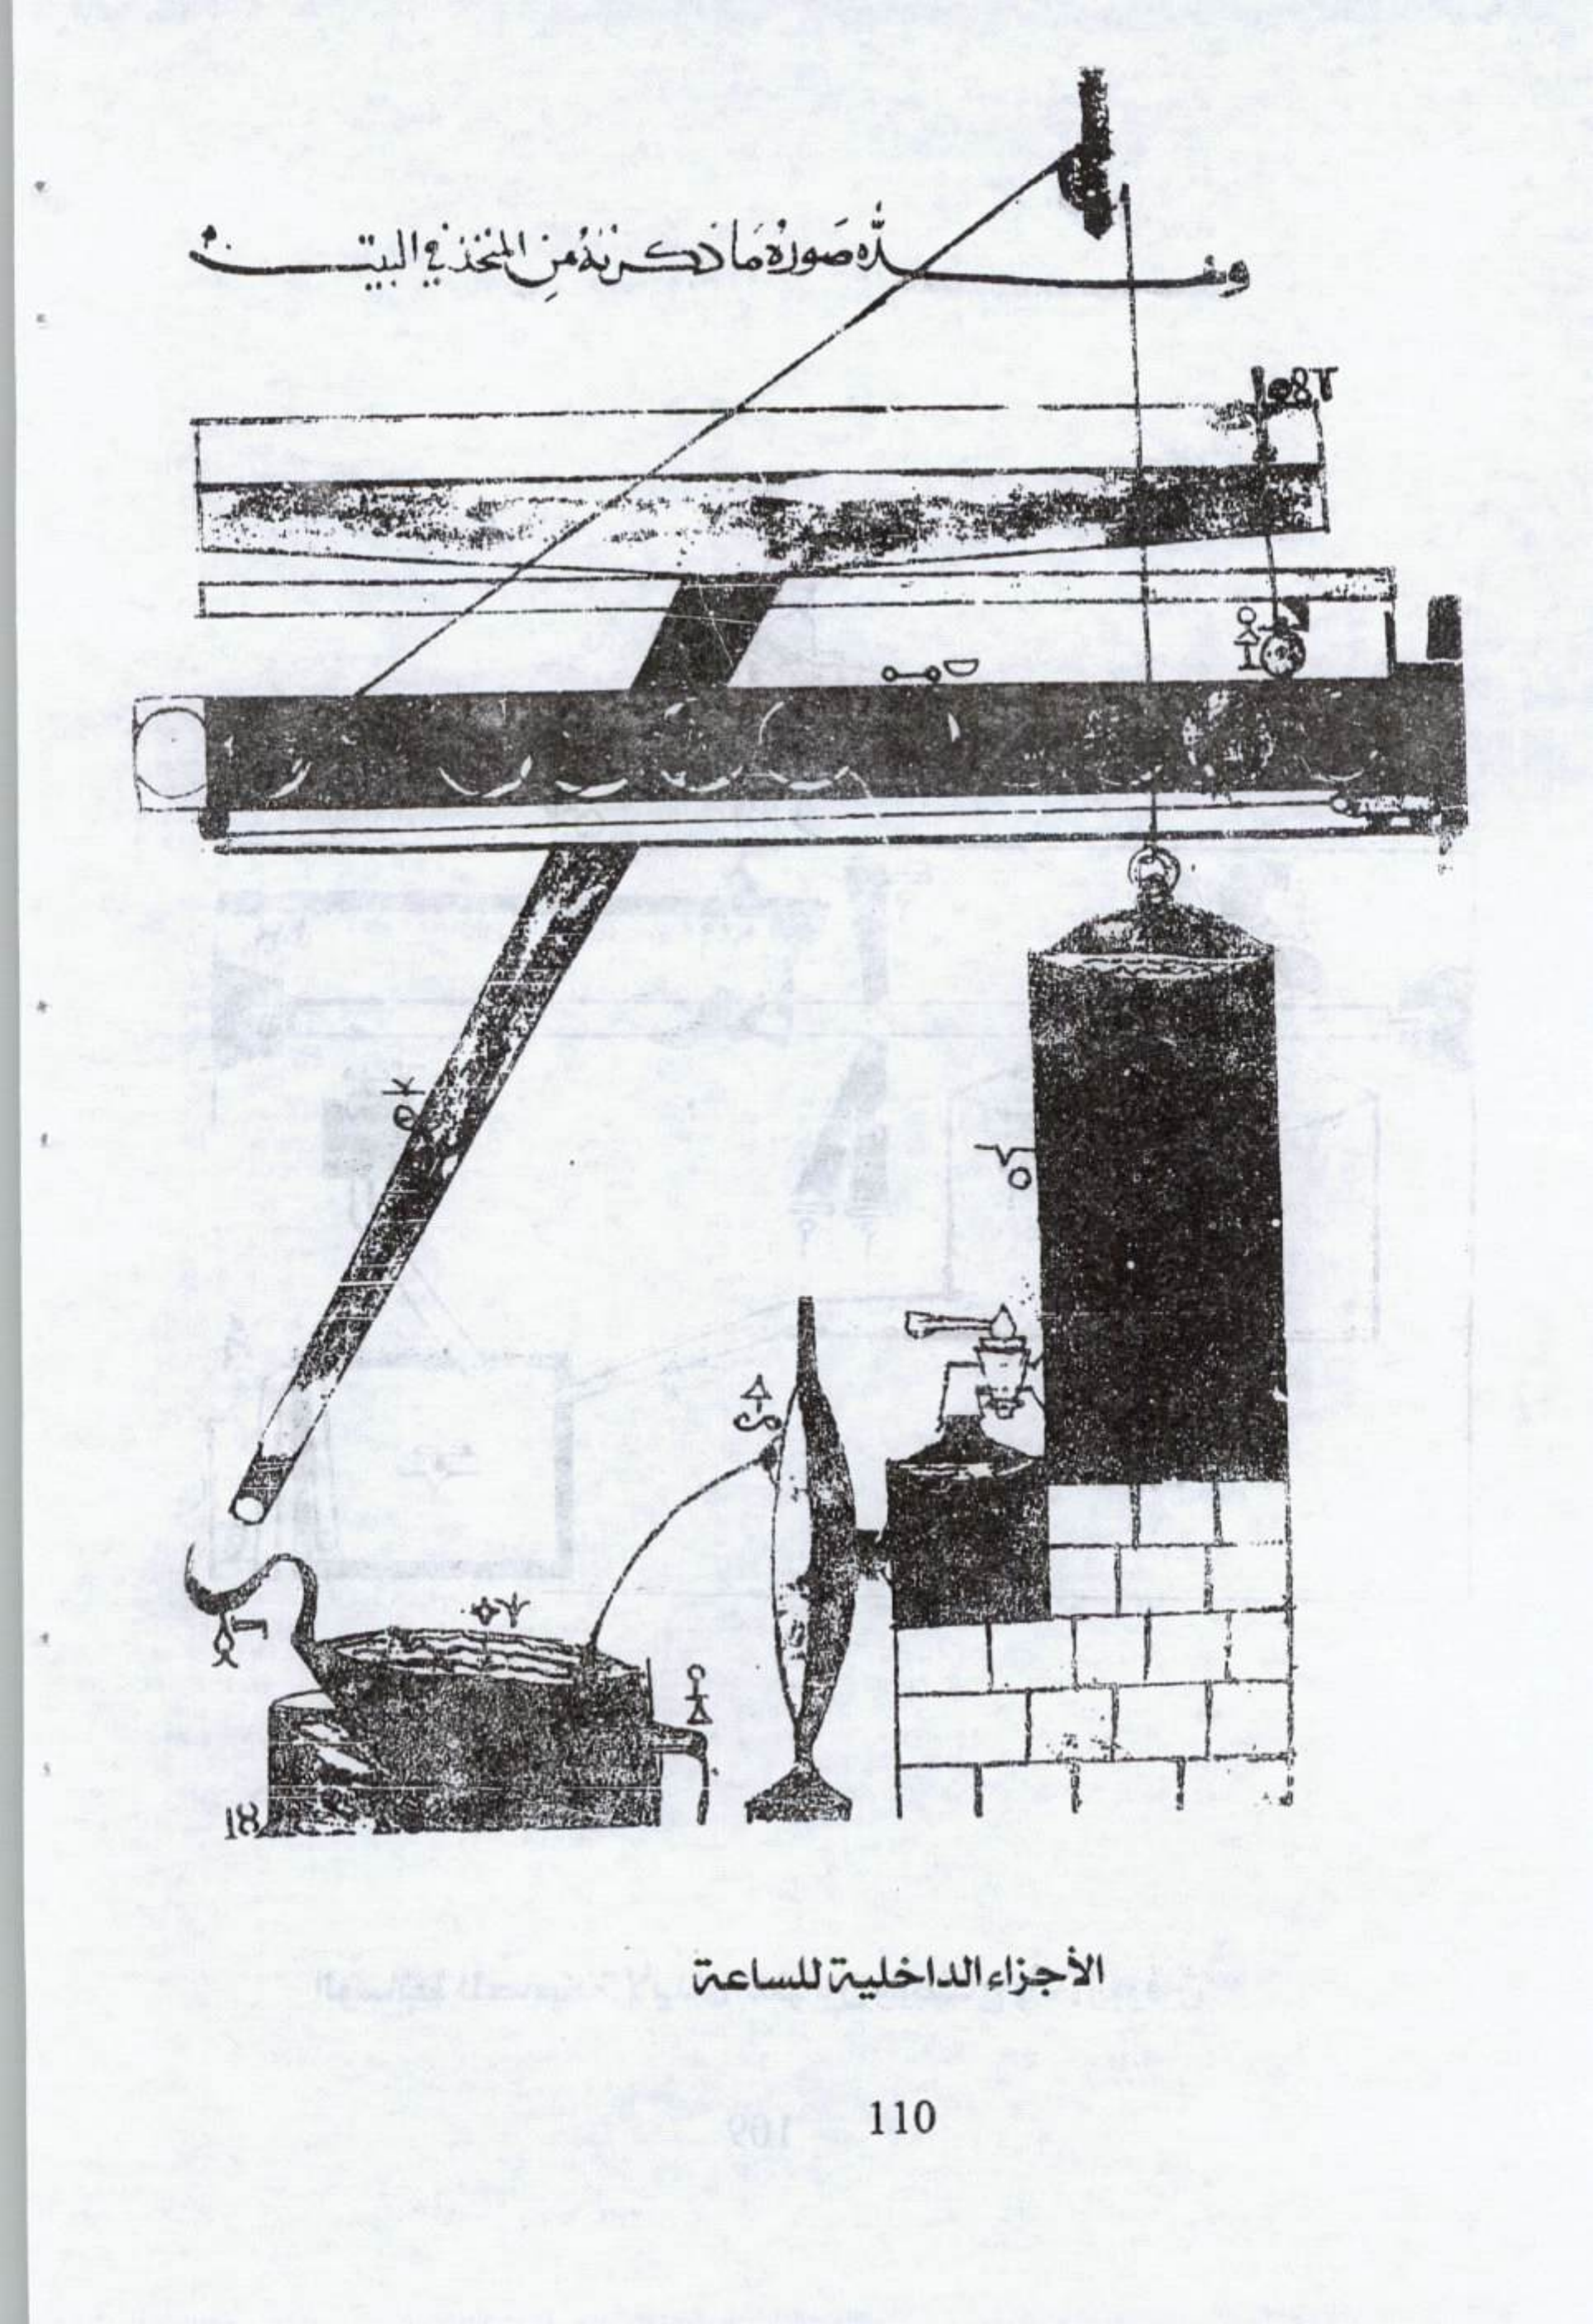 وهذه صورة ما ذكرته من المتخذ في البيت
الأجزاء الداخلية للساعة
110